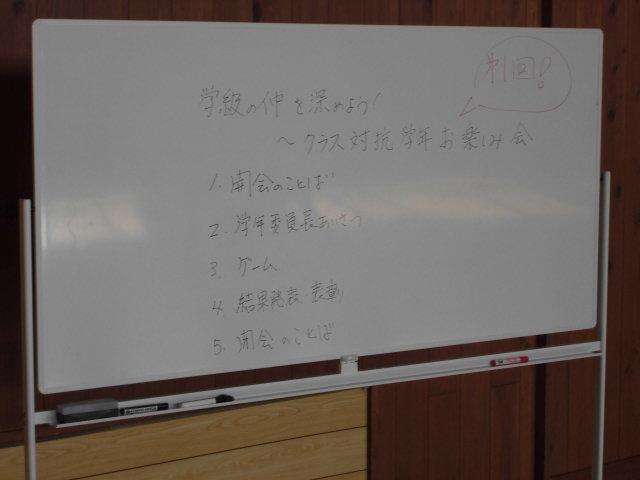 第1回!
学級の仲を深めよう!
～クラス対抗学年お楽しみ会
1. 開会のことば
2. 学年委員長あいさつ
3. ゲーム
4. 結果発表・表彰
5. 閉会のことば